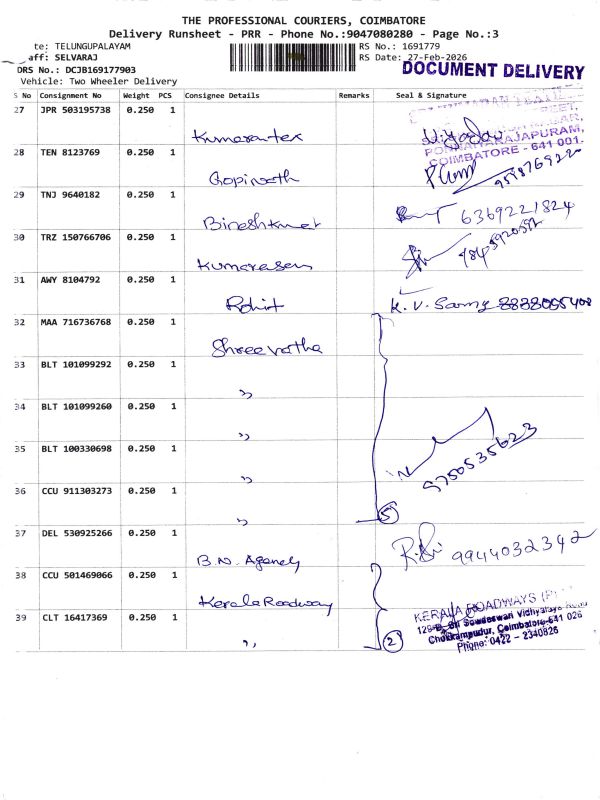 THE PROFESSIONAL COURIERS, COIMBATORE
Delivery Runsheet - PRR - Phone No.:9047080280 - Page No.:3
te: TELUNGUPALAYAM RS No.: 1691779
aff: SELVARAJ RS Date: 27-Feb-2026
DOCUMENT DELIVERY
DRS No.: DCJB169177903
Vehicle: Two Wheeler Delivery
S No Consignment No Weight PCS Consignee Details Remarks Seal & Signature
27 JPR 503195738 0.250 1
Kumarantex
PONNAIYARAJAPURAM,
COIMBATORE - 641 001.
28 TEN 8123769 0.250 1
Gopinath
29 TNJ 9640182 0.250 1
Bineshkumar 6369221824
30 TRZ 150766706 0.250 1
Kumarasen
31 AWY 8104792 0.250 1
Rohit K. V. Samy
32 MAA 716736768 0.250 1
Shreevatha
33 BLT 101099292 0.250 1
"
34 BLT 101099260 0.250 1
"
35 BLT 100330698 0.250 1
" 9750535623
36 CCU 911303273 0.250 1
" 5
37 DEL 530925266 0.250 1
B.N. Agency 9944032342
38 CCU 501469066 0.250 1
Kerala Roadway
KERALA ROADWAYS
39 CLT 16417369 0.250 1
" 2
Sri Sowdeswari Vidhyalaya
Chokkampudur, Coimbatore-641 026
Phone: 0422 - 2340826